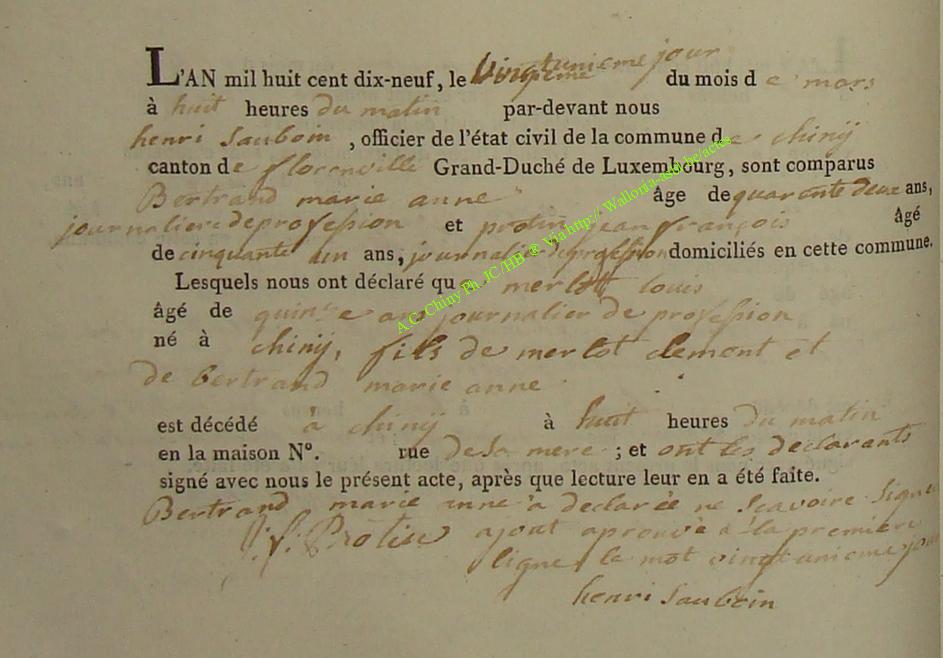 L'AN mil huit cent dix-neuf, le vingtunieme jour du mois de mars
à huit heures du matin par-devant nous
henri Sauboin , officier de l'état civil de la commune de chinij
canton de florenville Grand-Duché de Luxembourg, sont comparus
Bertrand marie anne âge de quarante deux ans,
journaliere de profession et protin jean françois âgé
de cinquante un ans, journalier de profession domiciliés en cette commune.
Lesquels nous ont déclaré que merlot louis
âgé de quinze ans journalier de profession
né à chinij, fils de merlot clement et
de bertrand marie anne
est décédé à chinij à huit heures du matin
en la maison N°. rue de sa mere ; et ont les declarants
signé avec nous le présent acte, après que lecture leur en a été faite.
Bertrand marie anne a declarée ne scavoire signer
j. f. Protin ajout aprouvé a la premiere
ligne le mot vingtunieme jour
henri Sauboin
A.C. Chiny Ph. JC/HB ® Via http:// Wallonia-asbl.be/actes